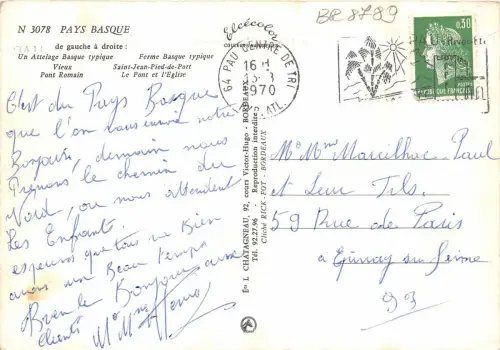 N 3078 PAYS BASQUE
de gauche à droite :
Un Attelage Basque typique Ferme Basque typique
Vieux Saint-Jean-Pied-de-Port
Pont Romain Le Pont et l'Eglise
Elcécolor
BR 8789
64 PAU CENTRE DE TRI
16 H
1970
ATL.
PAU
0,30
REPUBLIQUE FRANÇAISE
C'est du Pays Basque
que l'on vous envoie notre
Bonjour, demain nous
Prenons le chemin du
Nord, ou nous attendent
Les Enfants.
esperons que tous va Bien
avons un Beau temps
Bien le Bonjour aux
Clients
M. Mme
Éts L. CHATAGNEAU, 92, cours Victor-Hugo - BORDEAUX
Tél. 92.27.96 - Reproduction interdite
Cliché RICK-POT - BORDEAUX
Mr Mme Marcilhac Paul
et Leur Fils.
59 Rue de Paris
à Epinay sur Seine
93